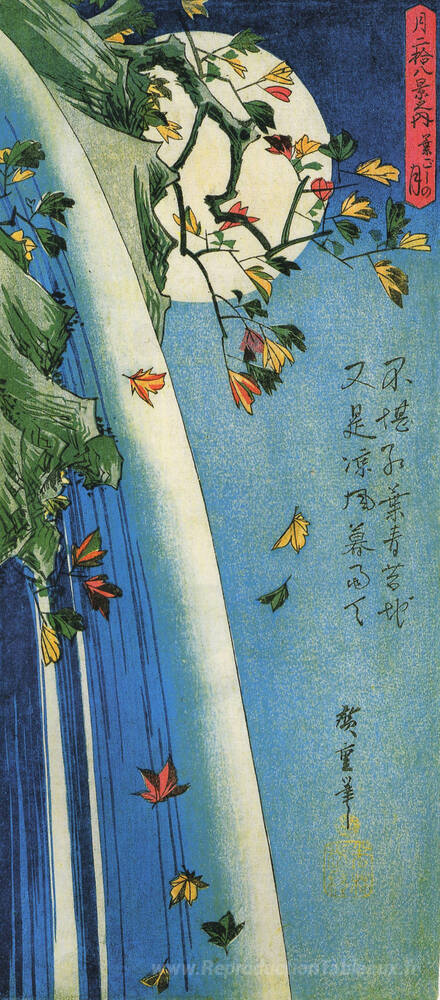 月二拾八景之内 葉ごしの月
不堪紅葉青苔地
又是涼風暮雨天
廣重筆
www.ReproductionTableaux.fr